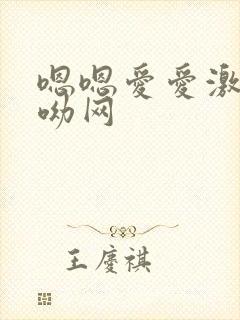 嗯嗯爱爱激
呦网
王庆祺